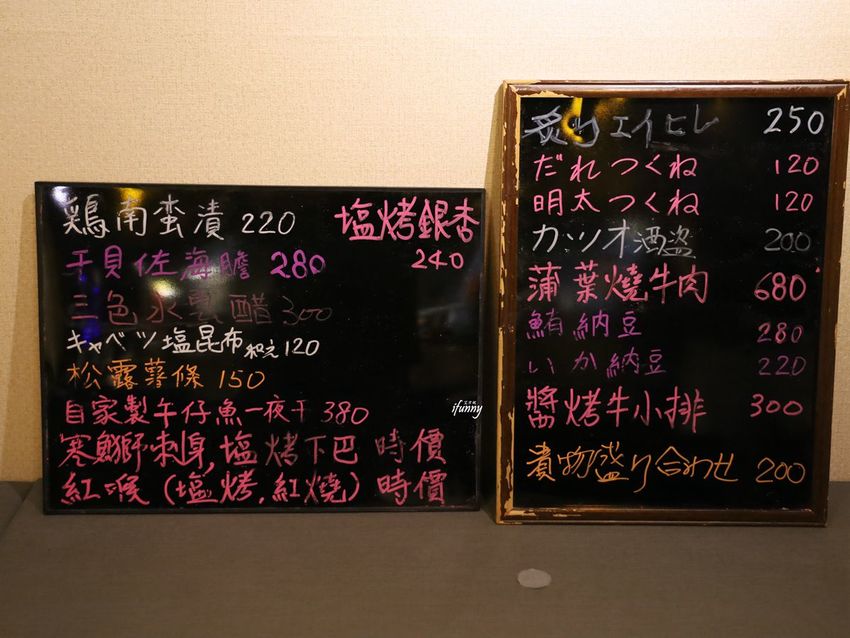 鶏南蛮漬 220
塩烤銀杏
240
干貝佐海膽 280
三色水雲醋 300
キャベツ塩昆布和え 120
松露薯條 150
自家製午仔魚一夜干 380
寒鰤刺身,塩烤下巴 時價
紅喉(塩烤,紅燒) 時價
ifunny
炙りエイヒレ 250
だれつくね 120
明太つくね 120
カツオ酒盗 200
蒲葉燒牛肉 680
鮪納豆 280
いか納豆 220
醬烤牛小排 300
漬物盛り合わせ 200